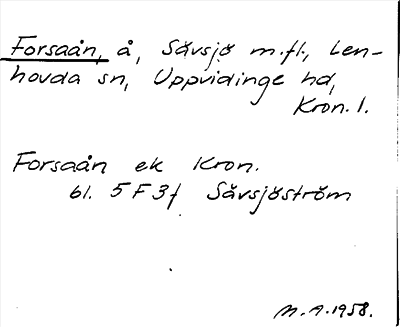 Forsaån, å, Sävsjö m.fl., Len-
hovda sn, Uppvidinge hd,
Kron. l.
Forsaån ek Kron.
bl. 5 F 3 f Sävsjöström
M. A. 1958.